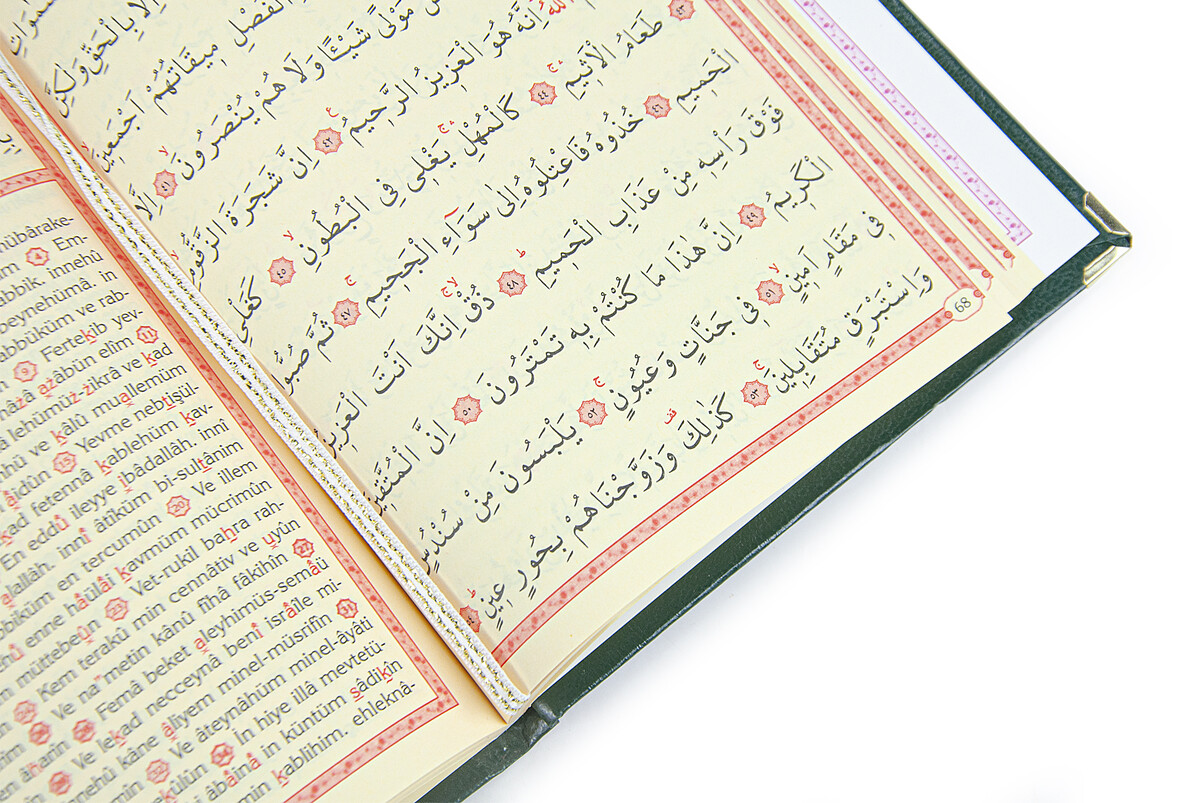 اِلَّا بِالْحَقِّ وَلٰكِنَّ
الْفَصْلِ مِيقَاتُهُمْ اَجْمَعِينَ
مَوْلًى شَيْـًٔا وَلَا هُمْ يُنْصَرُونَ ٤١ اِلَّا
اللّٰهُ اِنَّهُ هُوَ الْعَزِيزُ الرَّحِيمُ ٤٢ اِنَّ شَجَرَةَ الزَّقُّومِ
٤٣ طَعَامُ الْاَثِيمِ ٤٤ كَالْمُهْلِ يَغْلِى فِى الْبُطُونِ ٤٥ كَغَلْىِ
الْحَمِيمِ ٤٦ خُذُوهُ فَاعْتِلُوهُ اِلٰى سَوَٓاءِ الْجَحِيمِ ٤٧ ثُمَّ صُبُّوا
فَوْقَ رَأْسِهِ مِنْ عَذَابِ الْحَمِيمِ ٤٨ ذُقْ اِنَّكَ اَنْتَ الْعَزِيزُ
الْكَرِيمُ ٤٩ اِنَّ هٰذَا مَا كُنْتُمْ بِهِ تَمْتَرُونَ ٥٠ اِنَّ الْمُتَّقِينَ
فِى مَقَامٍ اَمِينٍ ٥١ فِى جَنَّاتٍ وَعُيُونٍ ٥٢ يَلْبَسُونَ مِنْ سُنْدُسٍ
وَاِسْتَبْرَقٍ مُتَقَابِلِينَ ٥٣ كَذٰلِكَ وَزَوَّجْنَاهُمْ بِحُورٍ عِينٍ ٥٤
68
mübârake-
4 Em-
rabbik. innehû
beynehümâ. in
rabbüküm ve rab-
9 Fertekib yev-
hâzâ azâbün elîm 11
lehümüz-zikrâ ve kad
ve kâlû muallemüm
15 Yevme nebtişül-
kad fetennâ kablehüm kav-
En eddû ileyye ibâdallâh. innî
alallâh. innî âtîküm bi-sultânim
rabbiküm en tercumûn 20 Ve illem
enne hâülâi kavmüm mücrimûn
müttebeûn 23 Vet-rukil bahra rah-
Kem terakû min cennâtiv ve uyûn
Ve na"metin kânû fîhâ fâkihîn 27
Femâ beket aleyhimüs-semâü
Ve lekad necceynâ benî isrâîle mi-
kâne âliyem minel-müsrifîn 31
Ve âteynâhüm minel-âyâti
34 İn hiye illâ mevtetü-
âbâinâ in küntüm sâdikîn
min kablihim. ehleknâ-